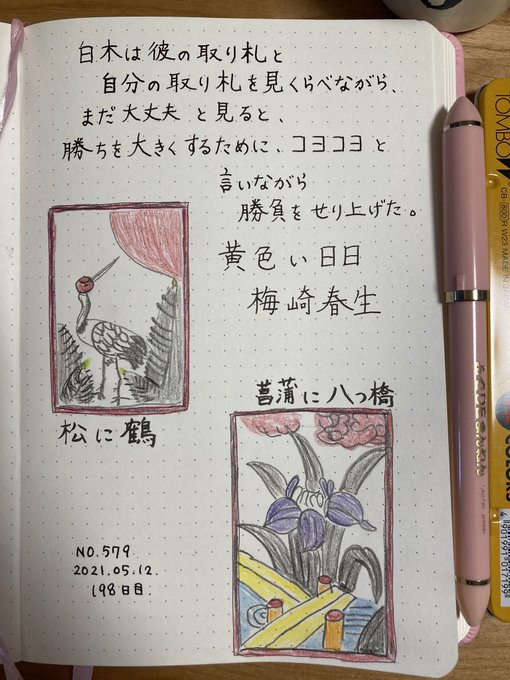 白木は彼の取り札と
自分の取り札を見くらべながら、
まだ大丈夫と見ると、
勝ちを大きくするために、コヨコヨと
言いながら
勝負をせり上げた。
黄色い日日
梅崎春生
松に鶴
菖蒲に八つ橋
NO.579
2021.05.12.
198日目
TOMBOW
COLORS
4901991017199